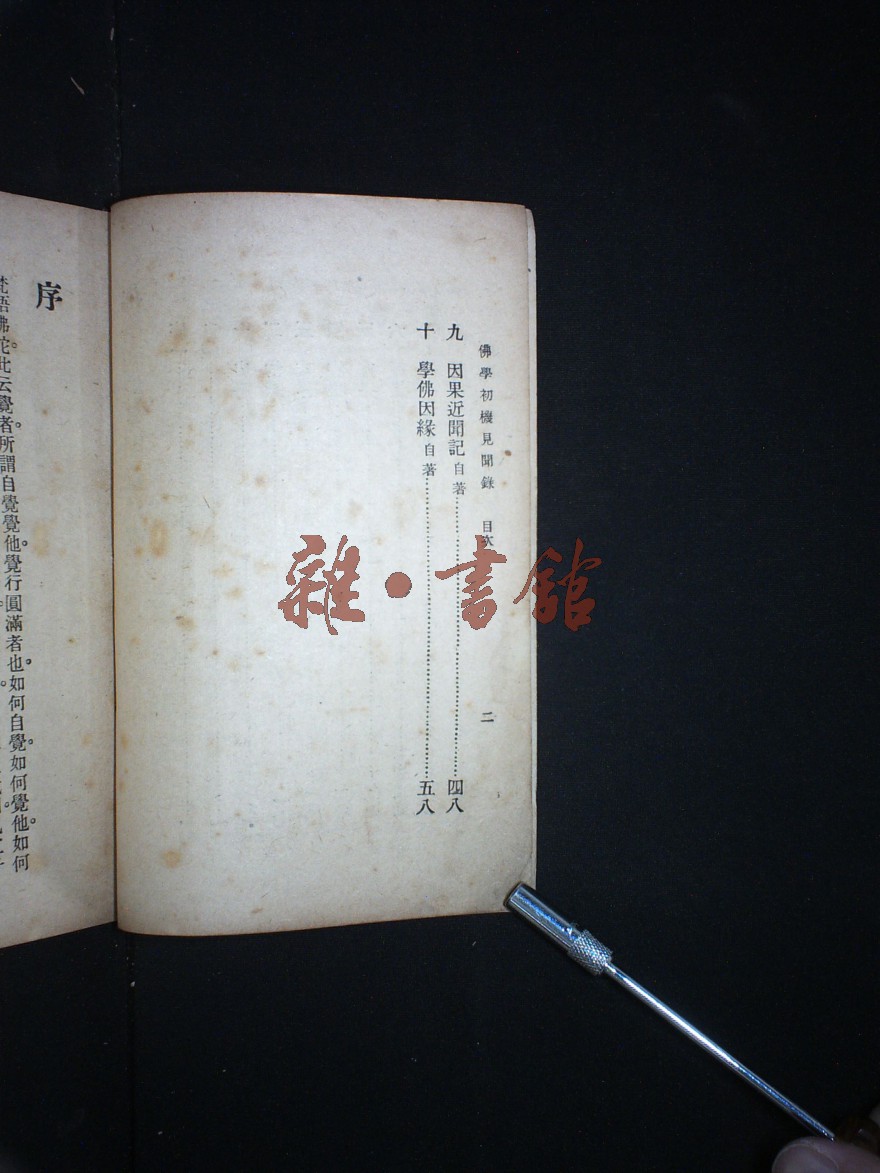 佛學初機見聞錄　目次　二
九　因果近聞記 自著……四八
十　學佛因緣 自著……五八
序
梵語佛陀。此云覺者。所謂自覺覺他。覺行圓滿者也。如何自覺。如何覺他。如何
雜・書館